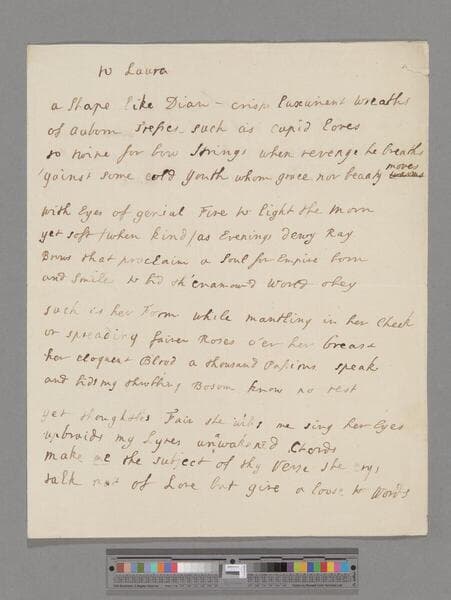 to Laura
a Shape like Dian - crisp luxurient wreaths
of auborn Tresses such as cupid loves
to twine for bow Strings when revenge he breaths
'gainst some cold Youth whom grace nor beauty moves
with Eyes of genial Fire to light the Morn
yet soft /when kind/ as Evenings dewy Ray
Brows that proclaim a Soul for Empire born
and Smile to bid th'enamourd World obey
such is her Form while mantling in her Cheek
or spreading fairer Roses o'er her breast
her eloquent Blood a thousand Passions speak
and bids my throbbing Bosom know no rest
yet thoughtless Fair she bids me sing her Eyes
upbraids my Lyres unwakened Chords
make me the subject of thy Verse she crys
talk not of Love but give a loose to Words